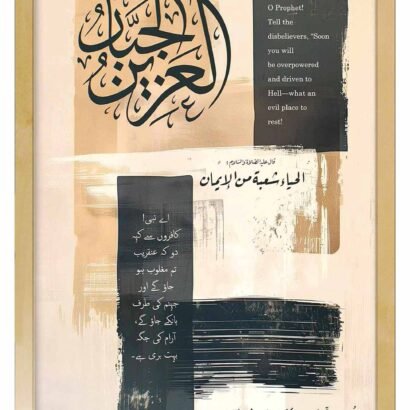 العزيز الجبار
O Prophet!
Tell the
disbelievers, “Soon
you will
be overpowered
and driven to
Hell—what an
evil place to
rest!
قال عليه الصلاة والسلام:
الحياء شعبة من الإيمان
اے نبی!
کافروں سے کہہ
دو کہ عنقریب
تم مغلوب ہو
جاؤ گے اور
جہنم کی طرف
ہانکے جاؤ گے،
آرام کی جگہ
بہت بری ہے۔